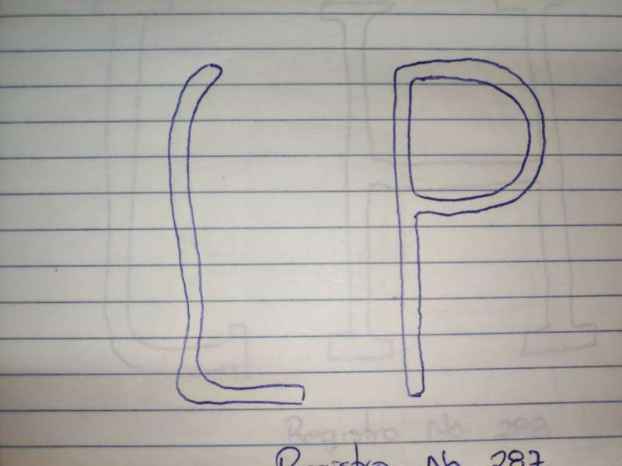 L P
Registro Nb 287